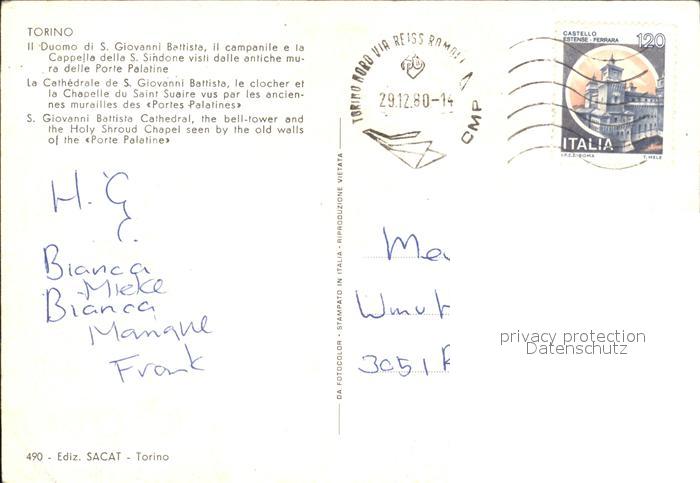 TORINO
Il Duomo di S. Giovanni Battista, il campanile e la
Cappella della S. Sindone visti dalle antiche mu-
ra delle Porte Palatine
La Cathédrale de S. Giovanni Battista, le clocher et
la Chapelle du Saint Suaire vus par les ancien-
nes murailles des «Portes Palatines»
S. Giovanni Battista Cathedral, the bell-tower and
the Holy Shroud Chapel seen by the old walls
of the «Porte Palatine»
H. G
Bianca
Mieke
Bianca
Frank
490 - Ediz. SACAT - Torino
DA FOTOCOLOR - STAMPATO IN ITALIA - RIPRODUZIONE VIETATA
TORINO NORD VIA REISS ROMOLI
29.12.80-14
CMP
CASTELLO
ESTENSE - FERRARA
120
ITALIA
I.P.Z.S. ROMA
T. MELE
3051
privacy protection
Datenschutz